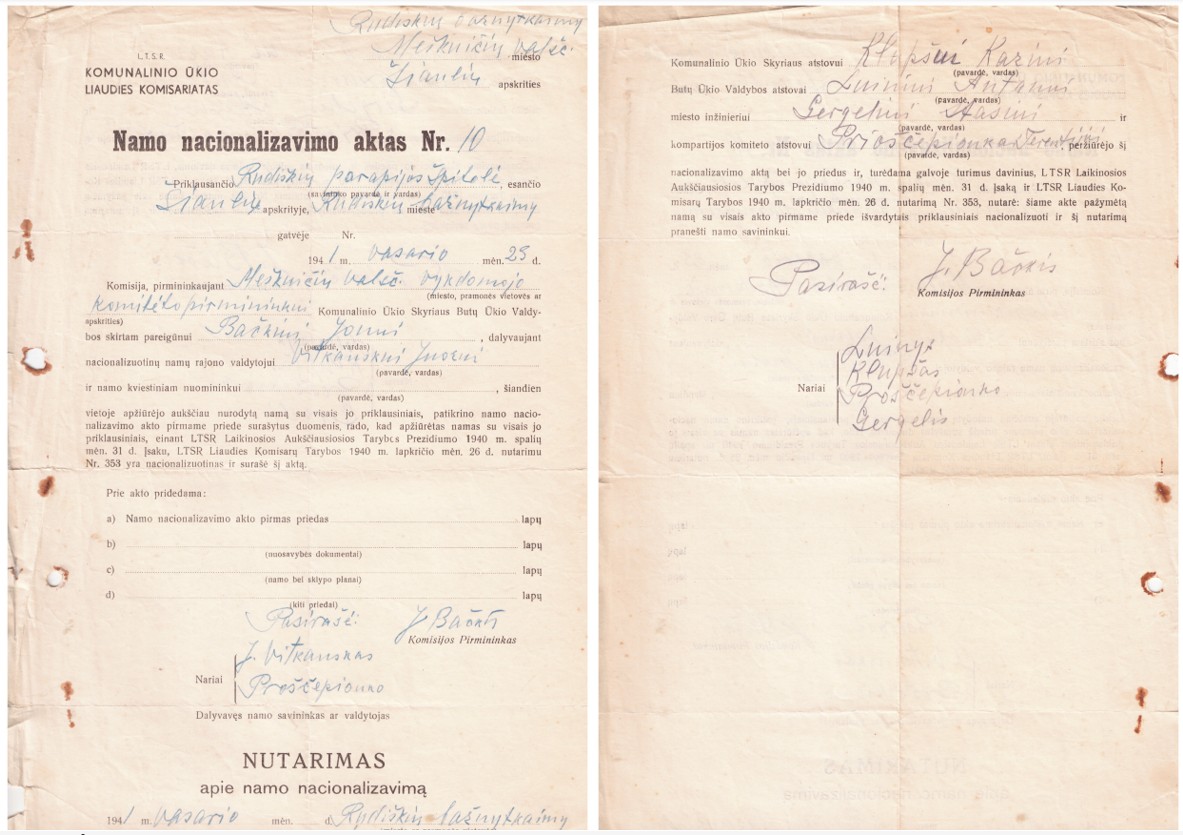 Rudiškių bažnytkaimy
Meškuičių valsč.
miesto
L.T.S.R.
KOMUNALINIO ŪKIO
LIAUDIES KOMISARIATAS
Šiaulių apskrities
Namo nacionalizavimo aktas Nr. 10
Priklausančio Rudiškių parapijos špitolė, esančio
(savininko pavardė ir vardas)
Šiaulių apskrityje, Rudiškių mieste bažnytkaimy
gatvėje Nr.
1941 m. vasario mėn. 25 d.
Komisija, pirmininkaujant Meškuičių valsč. vykdomojo
(miesto, pramonės vietovės ar
komitėto pirmininkui Komunalinio Ūkio Skyriaus Butų Ūkio Valdy-
apskrities)
bos skirtam pareigūnui Bačkini Jonui, dalyvaujant
(pavardė, vardas)
nacionalizuotinų namų rajono valdytojui Vitkauskui Juozui
(pavardė, vardas)
ir namo kviestiniam nuomininkui , šiandien
(pavardė, vardas)
vietoje apžiūrėjo aukščiau nurodytą namą su visais jo priklausiniais, patikrino namo nacio-
nalizavimo akto pirmame priede surašytus duomenis, rado, kad apžiūrėtas namas su visais jo
priklausiniais, einant LTSR Laikinosios Aukščiausiosios Tarybos Prezidiumo 1940 m. spalių
mėn. 31 d. Įsaku, LTSR Liaudies Komisarų Tarybos 1940 m. lapkričio mėn. 26 d. nutarimu
Nr. 353 yra nacionalizuotinas ir surašė šį aktą.
Prie akto pridedama:
a) Namo nacionalizavimo akto pirmas priedas lapų
b) lapų
(nuosavybės dokumentai)
c) lapų
(namo bei sklypo planai)
d) lapų
(kiti priedai)
Pasirašė: J. Bačkis
Komisijos Pirmininkas
J. Vitkauskas
Nariai
Proščepionko
Dalyvavęs namo savininkas ar valdytojas
NUTARIMAS
apie namo nacionalizavimą
1941 m. vasario mėn. d. Rudiškių bažnytkaimy
Komunalinio Ūkio Skyriaus atstovui Klapšui Kazini
(pavardė, vardas)
Butų Ūkio Valdybos atstovui Luinini Antanui
(pavardė, vardas)
miesto inžinieriui Gergelini Stasini ir
(pavardė, vardas)
kompartijos komiteto atstovui Prioščepionka, peržiūrėjo šį
(pavardė, vardas)
nacionalizavimo aktą bei jo priedus ir, turėdama galvoje turimus davinius, LTSR Laikinosios
Aukščiausiosios Tarybos Prezidiumo 1940 m. spalių mėn. 31 d. Įsaką ir LTSR Liaudies Ko-
misarų Tarybos 1940 m. lapkričio mėn. 26 d. nutarimą Nr. 353, nutarė: šiame akte pažymėtą
namą su visais akto pirmame priede išvardytais priklausiniais nacionalizuoti ir šį nutarimą
pranešti namo savininkui.
Pasirašė: J. Bačkis
Komisijos Pirmininkas
Luinys
Klapšas
Nariai
Proščepionko
Gergelis